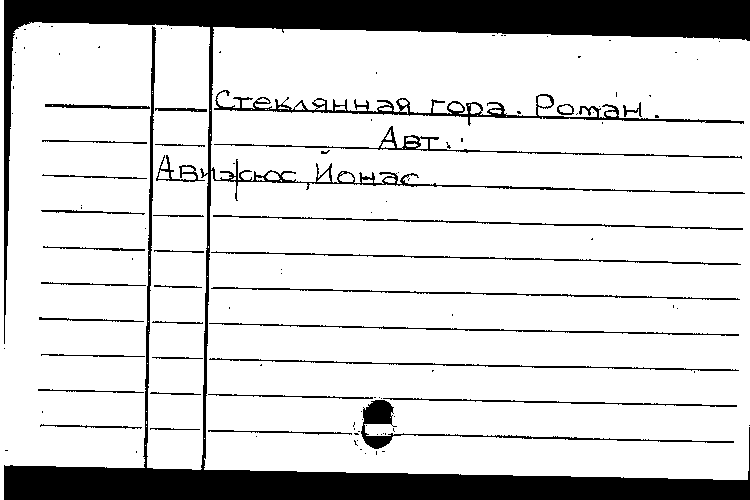 Стеклянная гора. Роман.
Авт.:
Авижюс, Йонас.